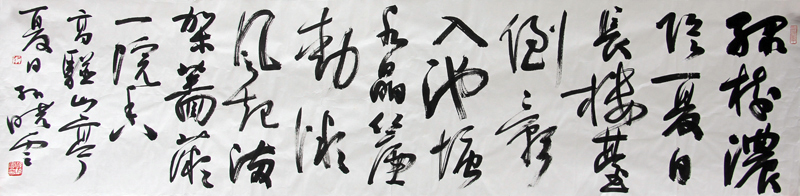 綠樹濃
陰夏日
長樓臺
倒影
入池塘
水晶簾
動微
風起滿
架薔薇
一院香
高駢山亭
夏日孫曉雲